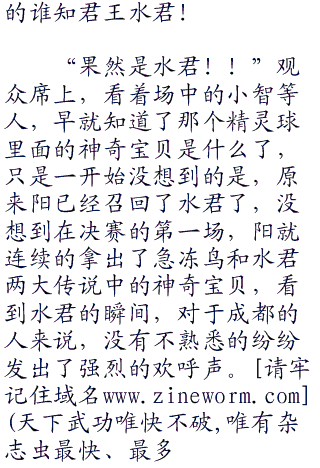 的谁知君王水君！
“果然是水君！！”观
众席上，看着场中的小智等
人，早就知道了那个精灵球
里面的神奇宝贝是什么了，
只是一开始没想到的是，原
来阳已经召回了水君了，没
想到在决赛的第一场，阳就
连续的拿出了急冻鸟和水君
两大传说中的神奇宝贝，看
到水君的瞬间，对于成都的
人来说，没有不熟悉的纷纷
发出了强烈的欢呼声。[请牢
记住域名www.zineworm.com]
(天下武功唯快不破,唯有杂
志虫最快、最多